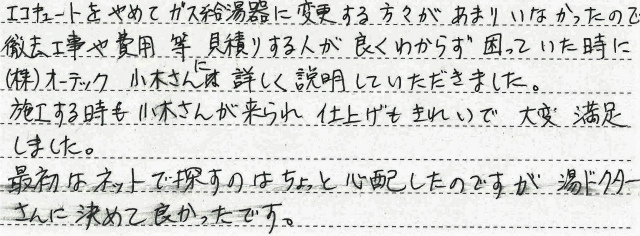 エコキュートをやめてガス給湯器に変更する方々があまりいなかったので
撤去工事や費用等見積りする人が良くわからず困っていた時に
(株)オーテック 小木さんには詳しく説明していただきました。
施工する時も小木さんが来られ仕上げもきれいで大変満足
しました。
最初はネットで探すのはちょっと心配したのですが湯ドクター
さんに決めて良かったです。